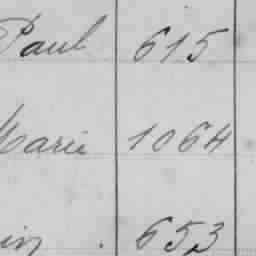 Paul 615
Marie 1064
in . 653